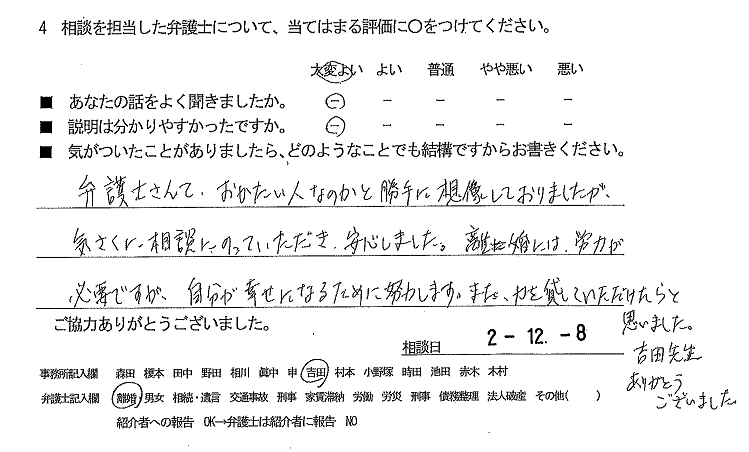 4 相談を担当した弁護士について、当てはまる評価に○をつけてください。
大変よい よい 普通 やや悪い 悪い
■ あなたの話をよく聞きましたか。 － － － － －
■ 説明は分かりやすかったですか。 － － － － －
■ 気がついたことがありましたら、どのようなことでも結構ですからお書きください。
弁護士さんて、おかたい人なのかと勝手に想像しておりましたが、
気さくに相談にのっていただき、安心しました。離婚には、労力が
必要ですが、自分が幸せになるために努力します。また、力を貸していただけたらと
思いました。
吉田先生
ありがとう
ございました
ご協力ありがとうございました。
相談日 2-12.-8
事務所記入欄 森田 榎本 田中 野田 相川 眞中 申 吉田 村本 小野塚 時田 池田 赤木 木村
弁護士記入欄 離婚 男女 相続・遺言 交通事故 刑事 家賃滞納 労働 労災 刑事 債務整理 法人破産 その他( )
紹介者への報告 OK→弁護士は紹介者に報告 NO